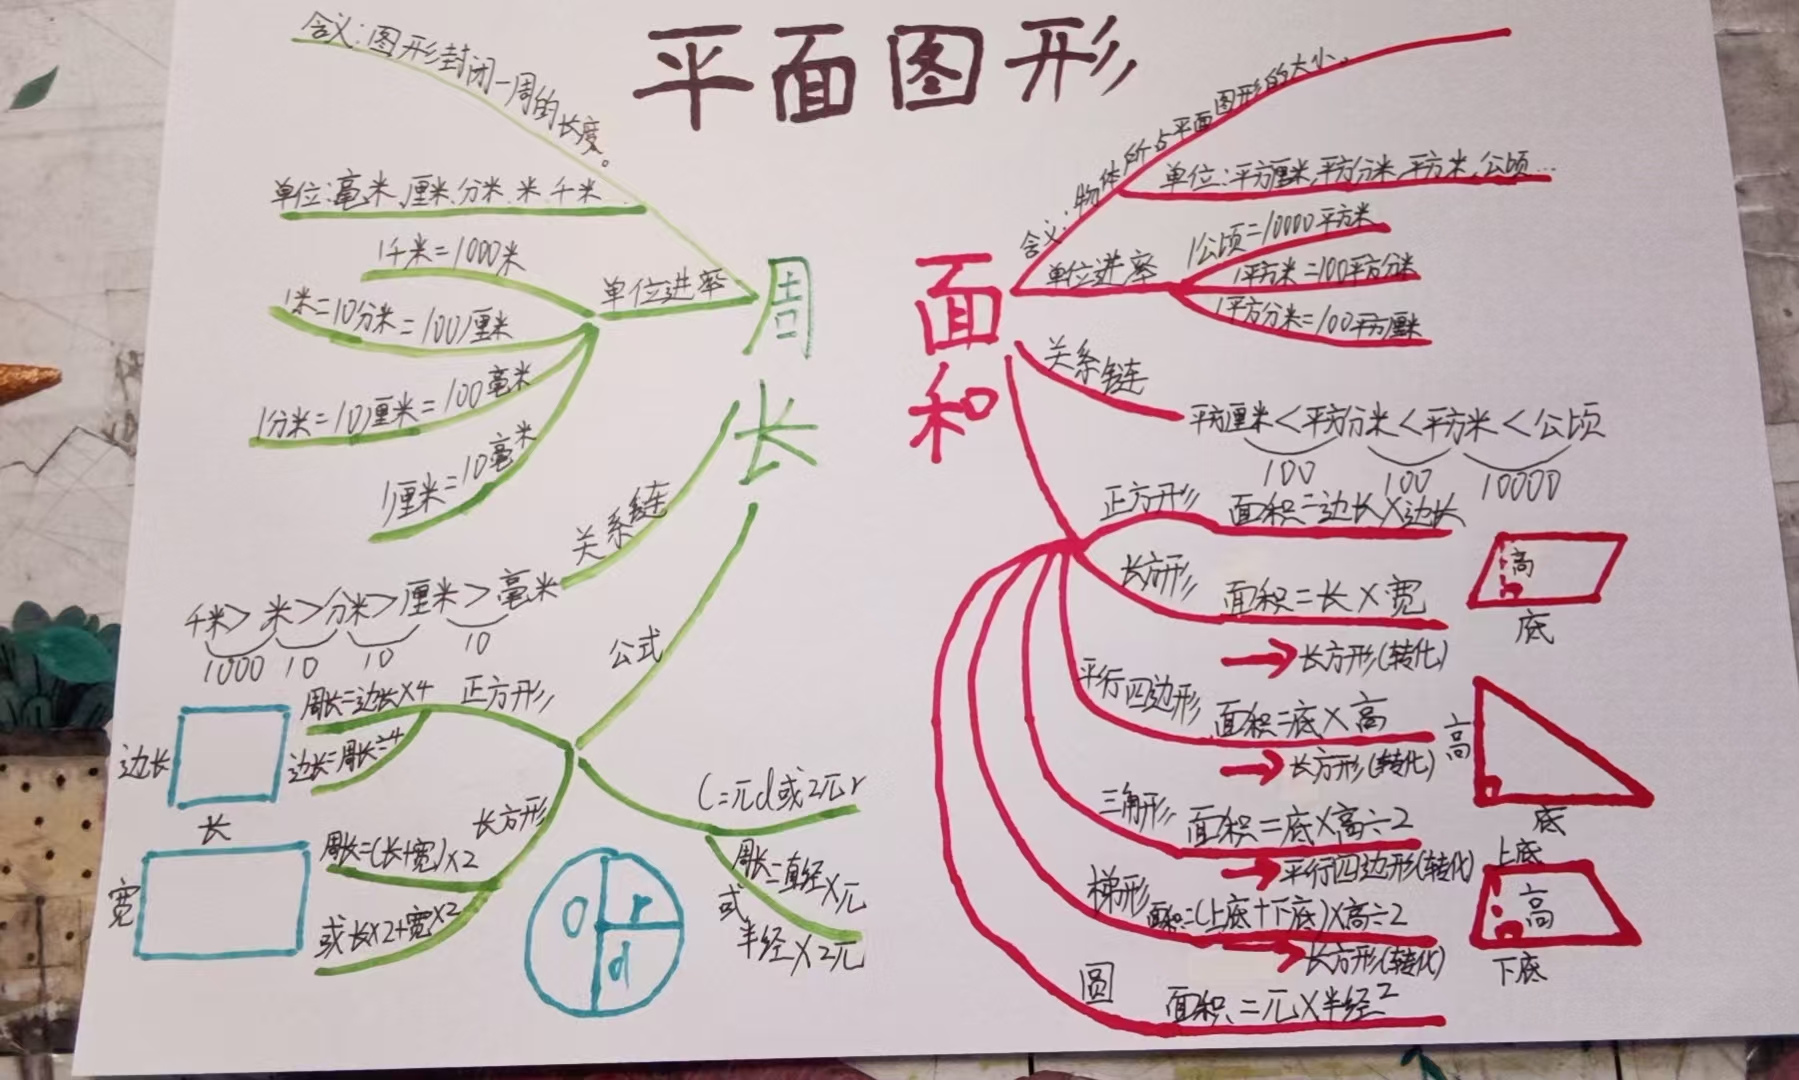 平面图形
周长
含义：图形封闭一周的长度。
单位：毫米、厘米、分米、米、千米
单位进率
1千米=1000米
1米=10分米=100厘米
1分米=10厘米=100毫米
1厘米=10毫米
关系链
千米>米>分米>厘米>毫米
1000 10 10 10
公式
正方形
周长=边长×4
边长=周长÷4
边长
长方形
周长=(长+宽)×2
或长×2+宽×2
长
宽
C=元d或2元r
周长=直经×元
或
半经×2元
O r
d
面积
含义：物体所占平面图形的大小。
单位：平方厘米、平方分米、平方米、公顷...
单位进率
1公顷=10000平方米
1平方米=100平方分米
1平方分米=100平方厘米
关系链
平方厘米<平方分米<平方米<公顷
100 100 10000
正方形 面积=边长×边长
长方形 面积=长×宽
→长方形(转化)
平行四边形 面积=底×高
高
底
→长方形(转化)
三角形 面积=底×高÷2
高
底
→平行四边形(转化)
梯形 面积=(上底+下底)×高÷2
上底
高
下底
→长方形(转化)
圆 面积=元×半经²